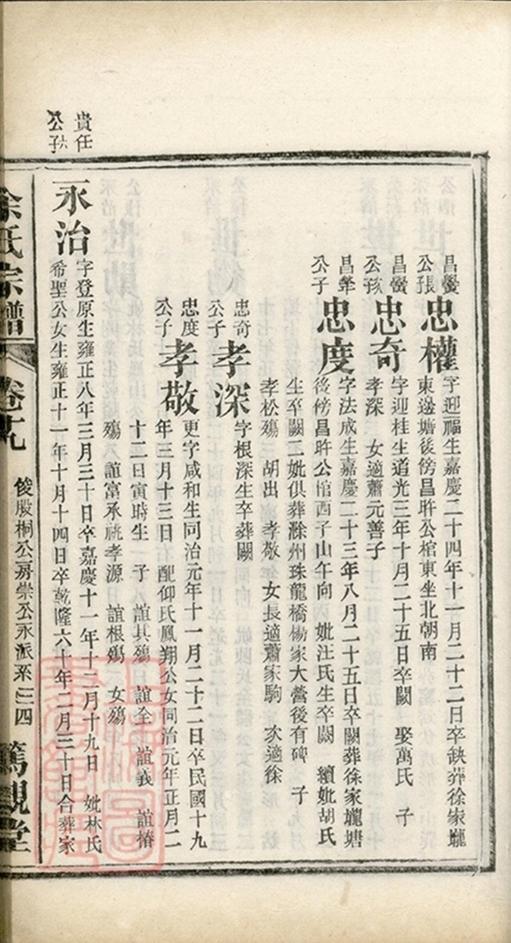 昌鑾公長
忠權
字迎福生嘉慶二十四年十一月二十二日卒缺葬徐家壠
東邊塘後傍昌許公棺東坐北朝南
昌鑾公次
忠奇
字迎桂生道光三年十月二十五日卒闕 娶萬氏 子
孝深 女適蕭元善子
昌犖公子
忠度
字法成生嘉慶二十三年八月二十五日卒闕葬徐家壠塘
後傍昌許公棺酉子山午向 妣汪氏生卒闕 續妣胡氏
生卒闕二妣俱葬滁州珠龍橋楊家大營後有碑 子
孝松殤 胡出 孝敬 女長適蕭家駒 次適徐
忠奇公子
孝深
字根深生卒葬闕
忠度公子
孝敬
更字咸和生同治元年十一月二十二日卒民國十九
年三月十三日 配仰氏鳳翔公女同治元年正月二
十二日寅時生 子 誼其殤 誼全 誼義 誼椿
殤 誼富承祧孝源 誼根殤 女殤
貴任公六子
永治
字登原生雍正八年三月三十日卒嘉慶十一年十二月十九日 妣林氏
希聖公女生雍正十一年十月十四日卒乾隆六十年二月三十日合葬家
余氏宗譜
卷十九
俊股桐公房崇公永派系
三四
篤親堂